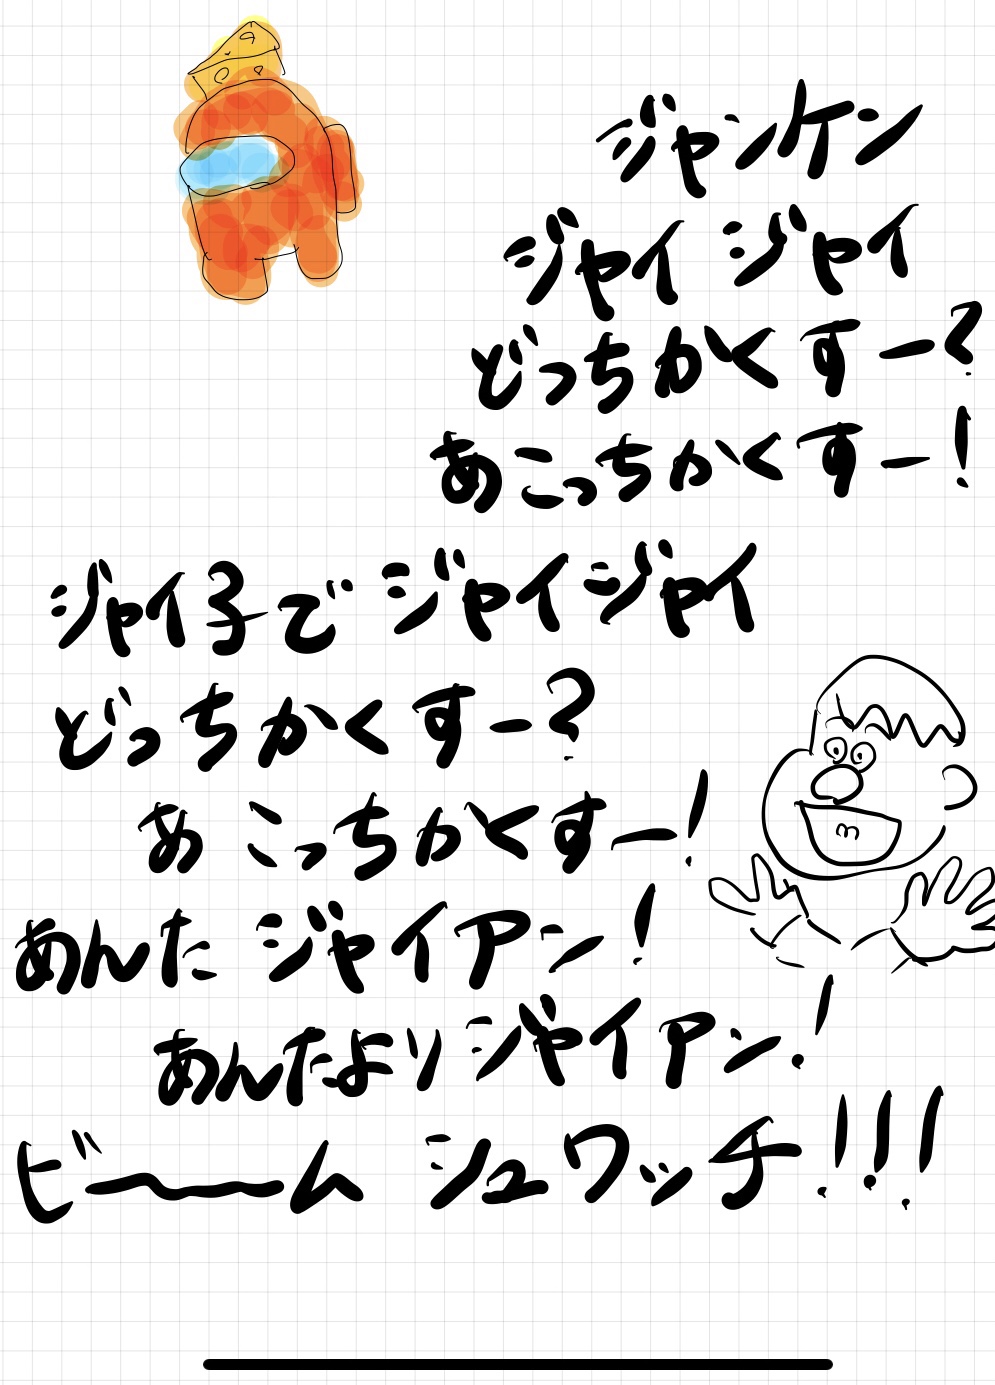 ジャンケン
ジャイ ジャイ
どっちかくすー?
あこっちかくすー!
ジャイ子で ジャイジャイ
どっちかくすー?
あ こっちかくすー!
あんた ジャイアン!
あんたより ジャイアン!
ビーーム シュワッチ!!!